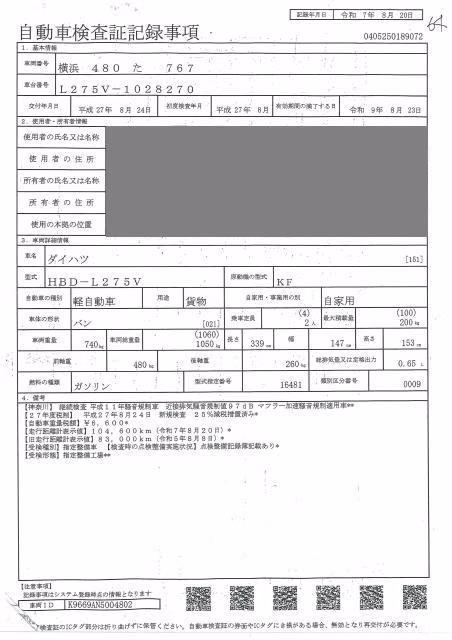 記録年月日 令和 7年 8月 20日
自動車検査証記録事項
0405250189072
1．基本情報
車両番号 横浜 480 た 767
車台番号 L275V-1028270
交付年月日 平成 27年 8月 24日 初度検査年月 平成 27年 8月 有効期間の満了する日 令和 9年 8月 23日
2．使用者・所有者情報
使用者の氏名又は名称
使用者の住所
所有者の氏名又は名称
所有者の住所
使用の本拠の位置
3．車両詳細情報
車名 ダイハツ [151]
型式 HBD-L275V 原動機の型式 KF
自動車の種別 軽自動車 用途 貨物 自家用・事業用の別 自家用
車体の形状 バン [021] 乗車定員 (4) 2人 最大積載量 (100) 200kg
車両重量 740kg 車両総重量 (1060) 1050kg 長さ 339cm 幅 147cm 高さ 153cm
前軸重 480kg 後軸重 260kg 総排気量又は定格出力 0.65 L
燃料の種類 ガソリン 型式指定番号 16481 類別区分番号 0009
4．備考
【神奈川】 継続検査 平成11年騒音規制車 近接排気騒音規制値97dB マフラー加速騒音規制適用車**
【27年度税制】 平成27年8月24日 新規検査 25%減税措置済み*
【自動車重量税額】￥6,600*
【走行距離計表示値】104,600km（令和7年8月20日）*
【旧走行距離計表示値】83,000km（令和5年8月8日）*
【受検種別】指定整備車 【検査時の点検整備実施状況】点検整備記録簿記載あり*
【受検形態】指定整備工場**
【注意事項】
記録事項はシステム登録時点の情報となります
車両ID K9669AN5004802
検査証のICタグ部分は折り曲げずに保管ください。自動車検査証の券面やICタグにき損がある場合、無効となり再交付が必要です。